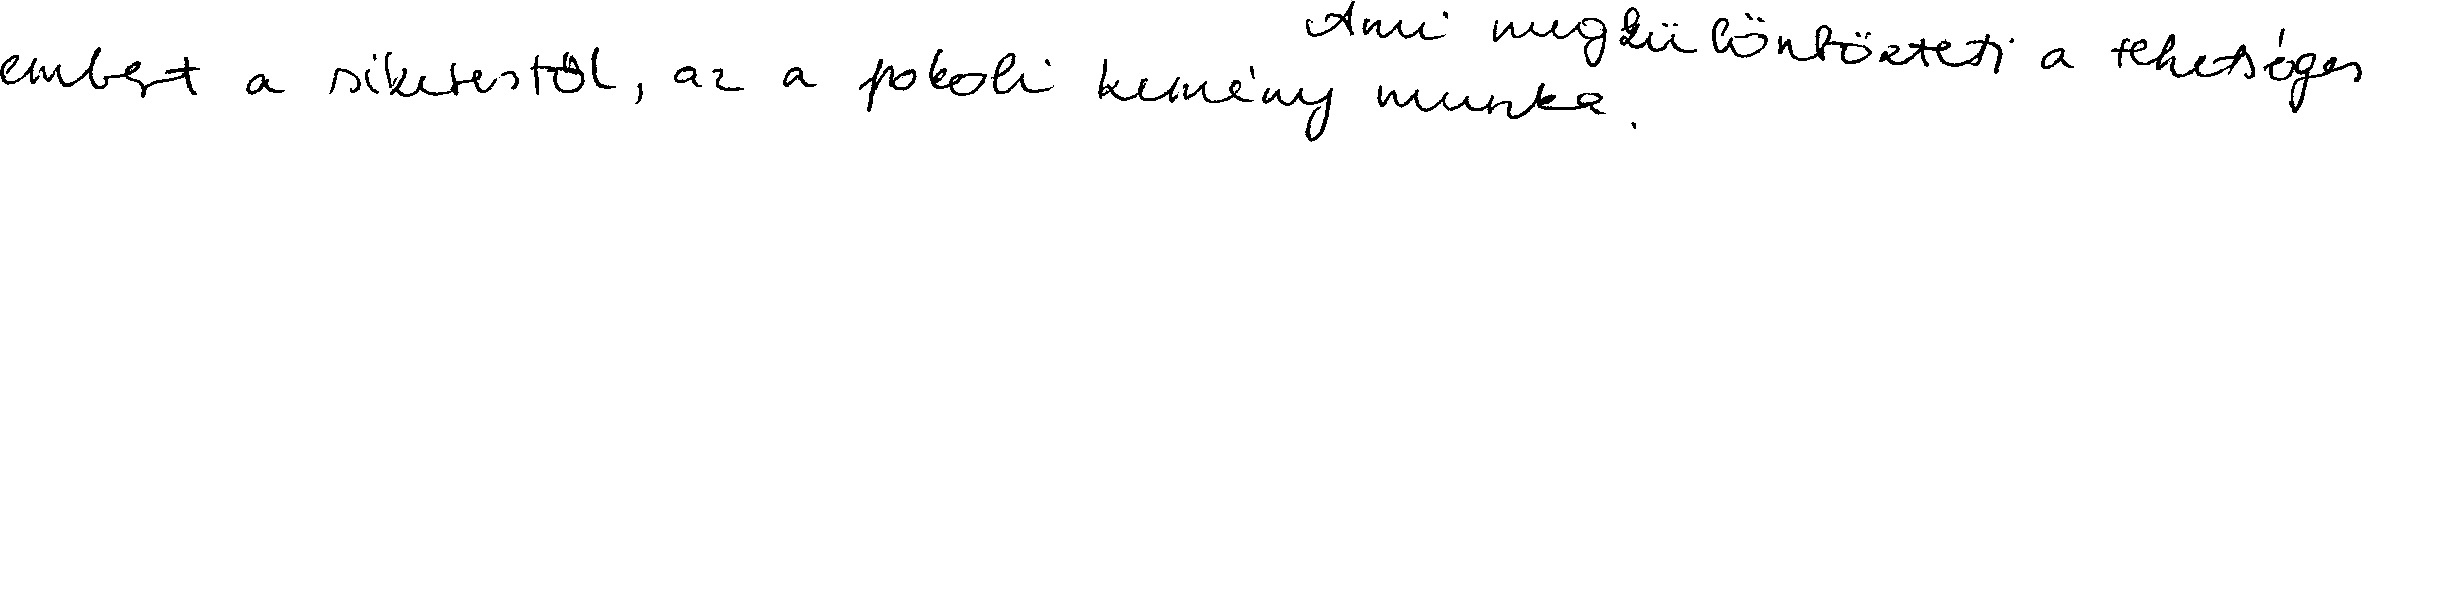 Ami megkülönbözteti a tehetséges
embert a sikerestől, az a pokoli kemény munka.